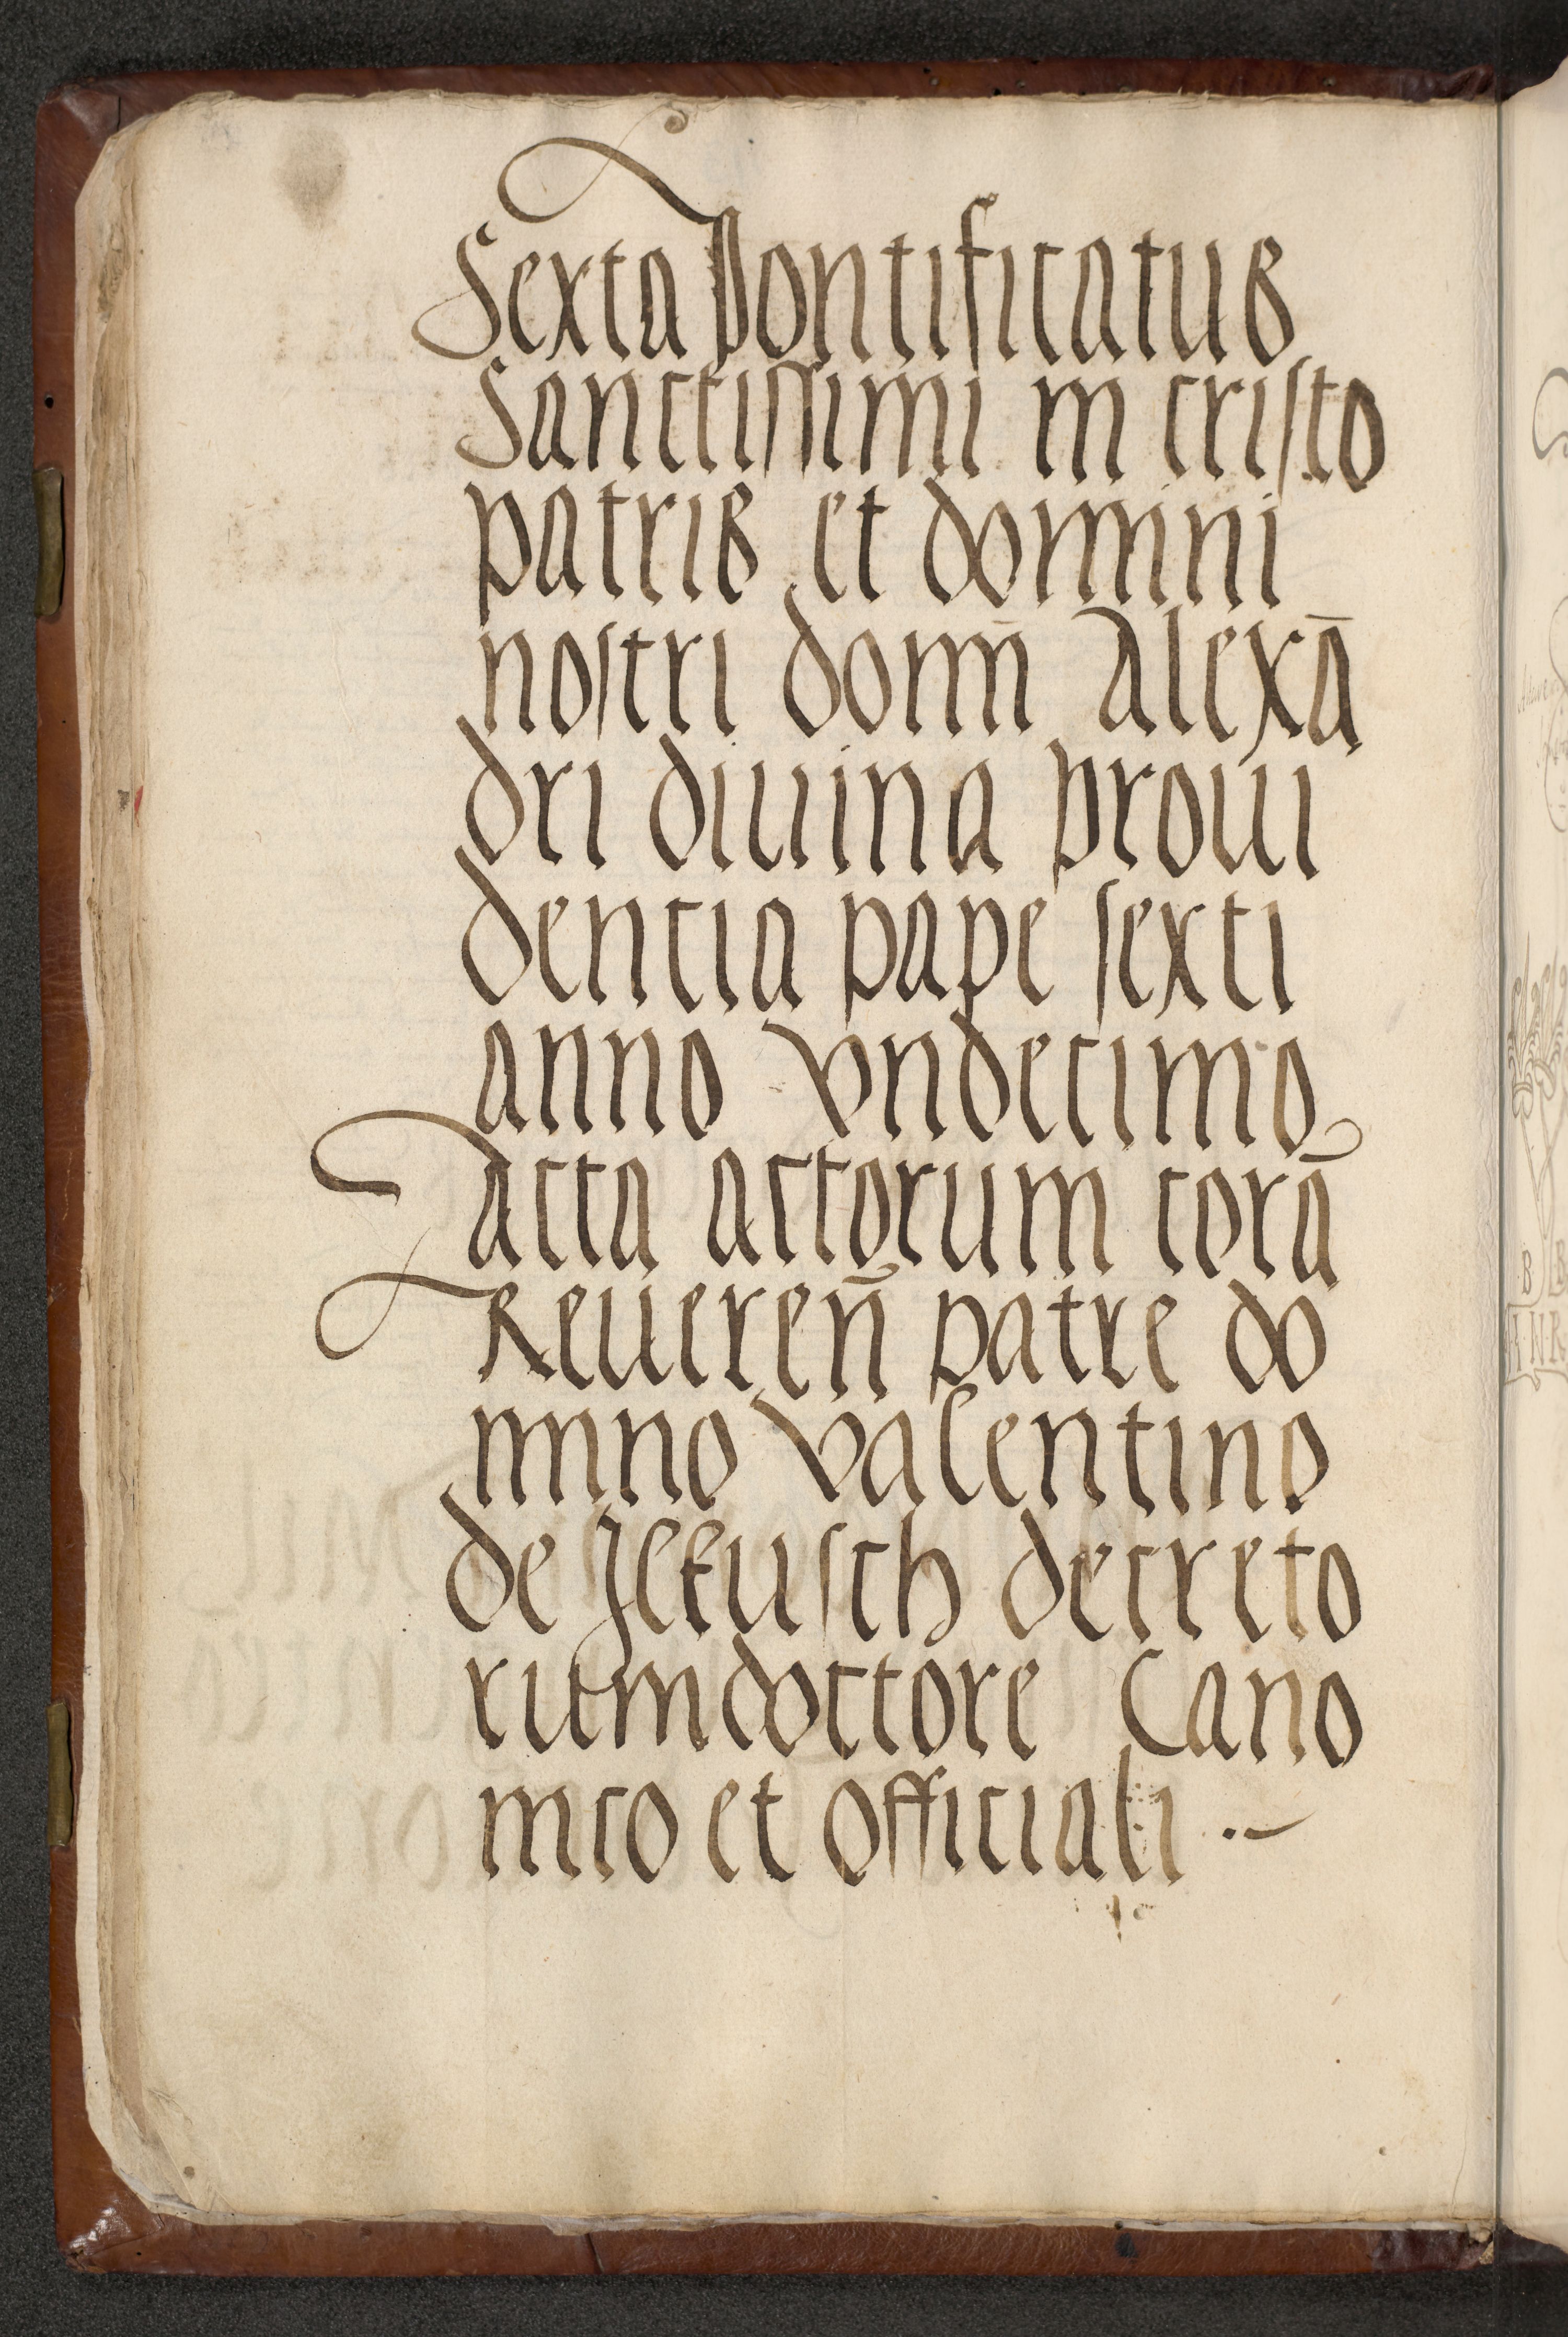 Sexta Pontificatus
Sanctissimi in cristo
patris et domini
nostri dom̄ Alexā
dri diuina proui
dencia pape sexti
anno vndecimo
acta actorum corā
Reueren̄ patre do
mino valentino
de decreto
rum doctore Cano
nico et officiali